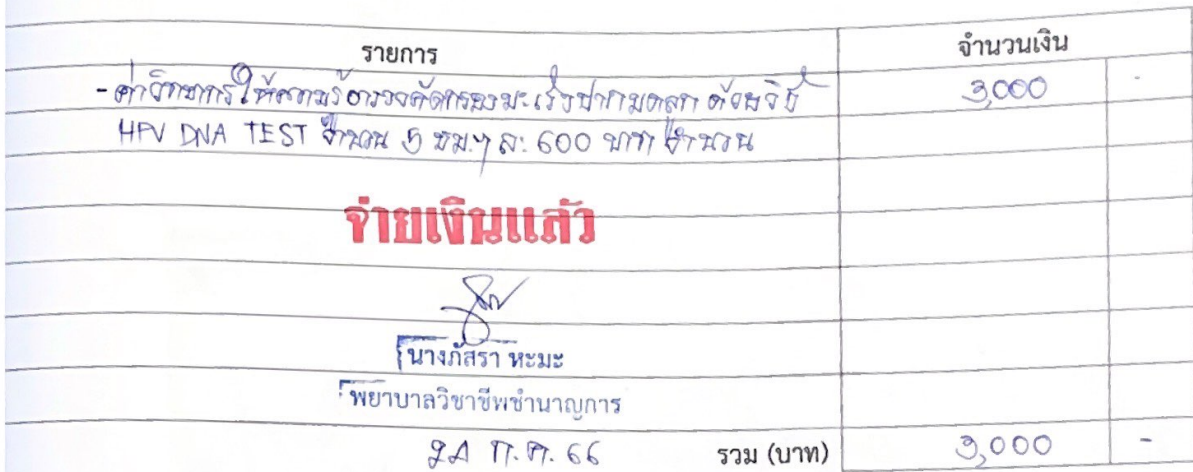 รายการ จำนวนเงิน
- ค่าวิทยากรให้ความรู้ตรวจคัดกรองมะเร็งปากมดลูก ด้วยวิธี 3,000 -
HPV DNA TEST จำนวน 5 ชม.ๆ ละ 600 บาท จำนวน
จ่ายเงินแล้ว
นางภัสรา หะมะ
พยาบาลวิชาชีพชำนาญการ
ก.ค. 66 รวม (บาท) 3,000 -